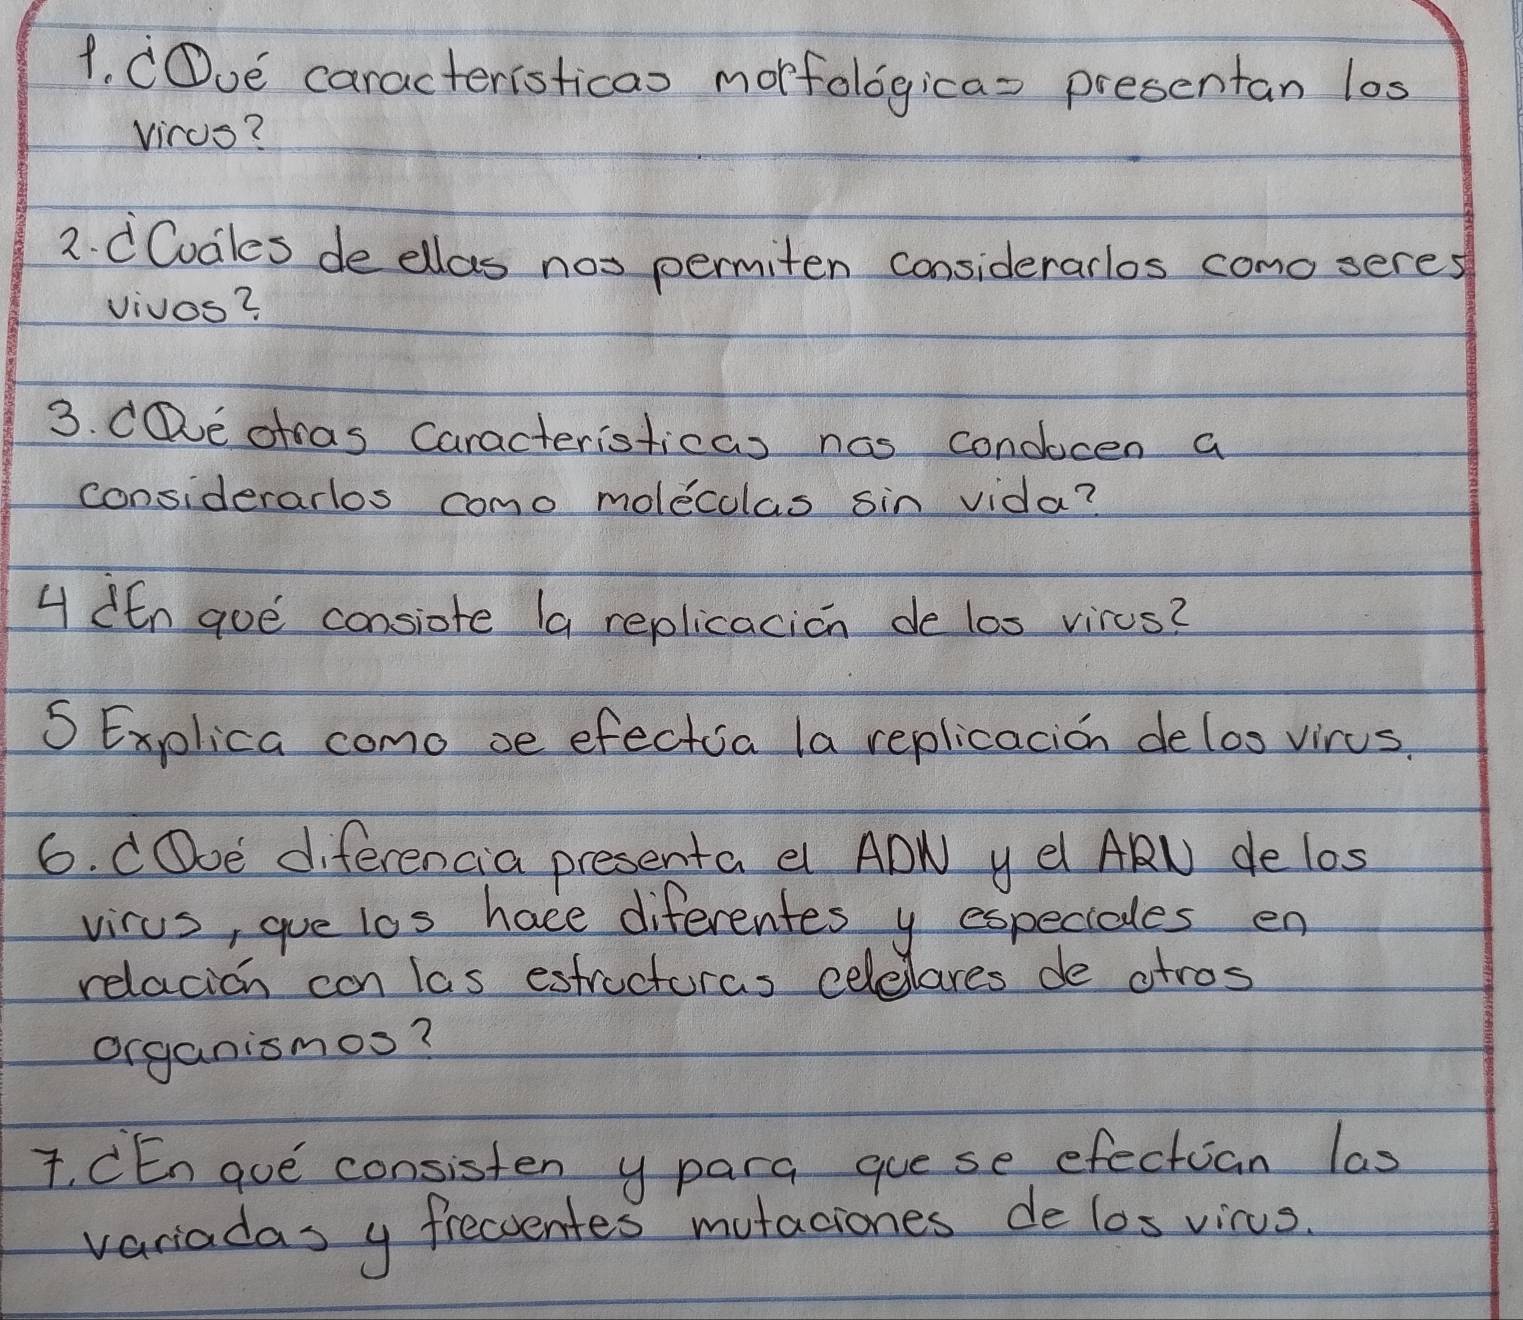 1. ¿Qué características morfológicas presentan los
virus?
2. ¿Cuáles de ellas nos permiten considerarlos como seres
vivos?
3. ¿Qué otras características nos conducen a
considerarlos como moléculas sin vida?
4 ¿En qué consiste la replicación de los virus?
5 Explica como se efectúa la replicación de los virus.
6. ¿Qué diferencia presenta el ADN y el ARN de los
virus, que los hace diferentes y especiales en
relación con las estructuras celulares de otros
organismos?
7. ¿En qué consisten y para que se efectúan las
variadas y frecuentes mutaciones de los virus.